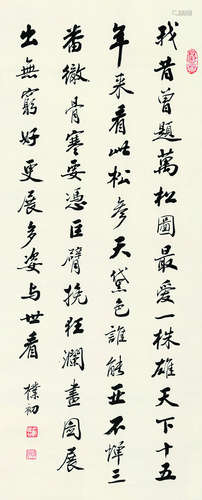 我昔曾題萬松圖最愛一株雄天下十五
年来看此松参天黛色誰能亞不憚三
番徹骨寒要憑巨臂挽狂瀾畫圖展
出無窮好更展多姿与世看
樸初